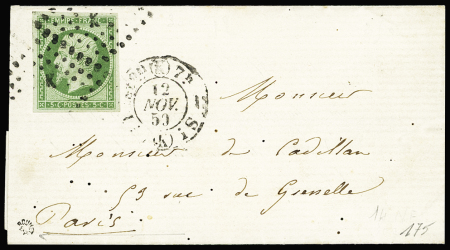 EMPIRE FRANC.
5·C·POSTES·5·C
7E
12
NOV.
59
(K)
Monsieur
Monsieur de Cadillan
59 rue de Grenelle
Paris
175